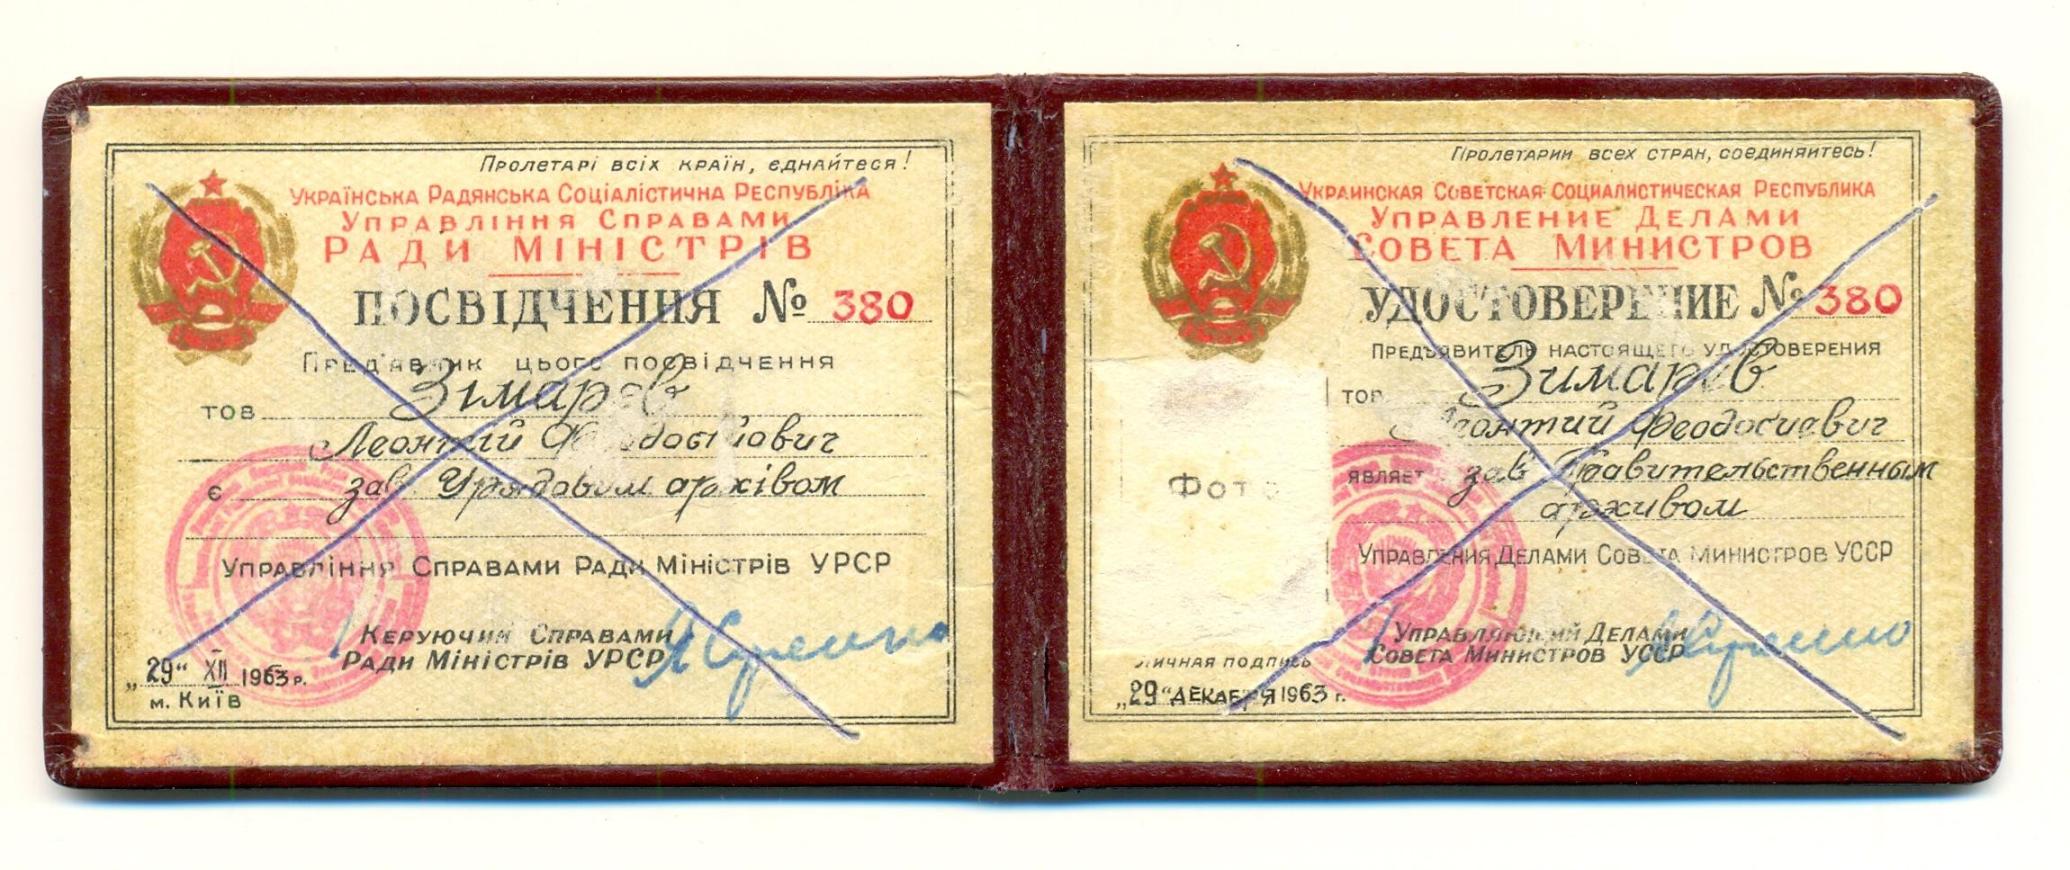 Пролетарі всіх країн, єднайтеся!
Українська Радянська Соціалістична Республіка
Управління Справами
РАДИ МІНІСТРІВ
ПОСВІДЧЕННЯ № 380
Пред'явник цього посвідчення
тов Зімарев
Леонтій Феодосійович
є зав. Урядовим архівом
Управління Справами Ради Міністрів УРСР
Керуючий Справами
Ради Міністрів УРСР
„29" XII 1963 р.
м. Київ
Пролетарии всех стран, соединяйтесь!
Украинская Советская Социалистическая Республика
Управление Делами
СОВЕТА МИНИСТРОВ
УДОСТОВЕРЕНИЕ № 380
Предъявитель настоящего удостоверения
тов Зимарев
Леонтий Феодосиевич
являет зав Правительственным
архивом
Фото
Управления Делами Совета Министров УССР
Управляющий Делами
Совета Министров УССР
Личная подпись
„29" ДЕКАБРЯ 1963 г.